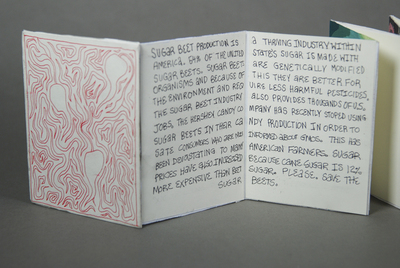 SUGAR BEET PRODUCTION IS A THRIVING INDUSTRY WITHIN
AMERICA. 54% OF THE UNITED STATE'S SUGAR IS MADE WITH
SUGAR BEETS. SUGAR BEETS ARE GENETICALLY MODIFIED
ORGANISMS AND BECAUSE OF THIS THEY ARE BETTER FOR
THE ENVIRONMENT AND LESS HARMFUL PESTICIDES.
THE SUGAR BEET INDUSTRY ALSO PROVIDES THOUSANDS OF U.S.
JOBS. THE HERSHEY CANDY COMPANY HAS RECENTLY STOPED USING
SUGAR BEETS IN THEIR CANDY PRODUCTION IN ORDER TO
SATE CONSUMERS WHO ARE MISINFORMED ABOUT GMOS. THIS HAS
BEEN DEVASTATING TO MANY AMERICAN FARMERS. SUGAR
PRICES HAVE ALSO INCREASED BECAUSE CANE SUGAR IS 12%
MORE EXPENSIVE THAN BEET SUGAR. PLEASE. SAVE THE
SUGAR BEETS.